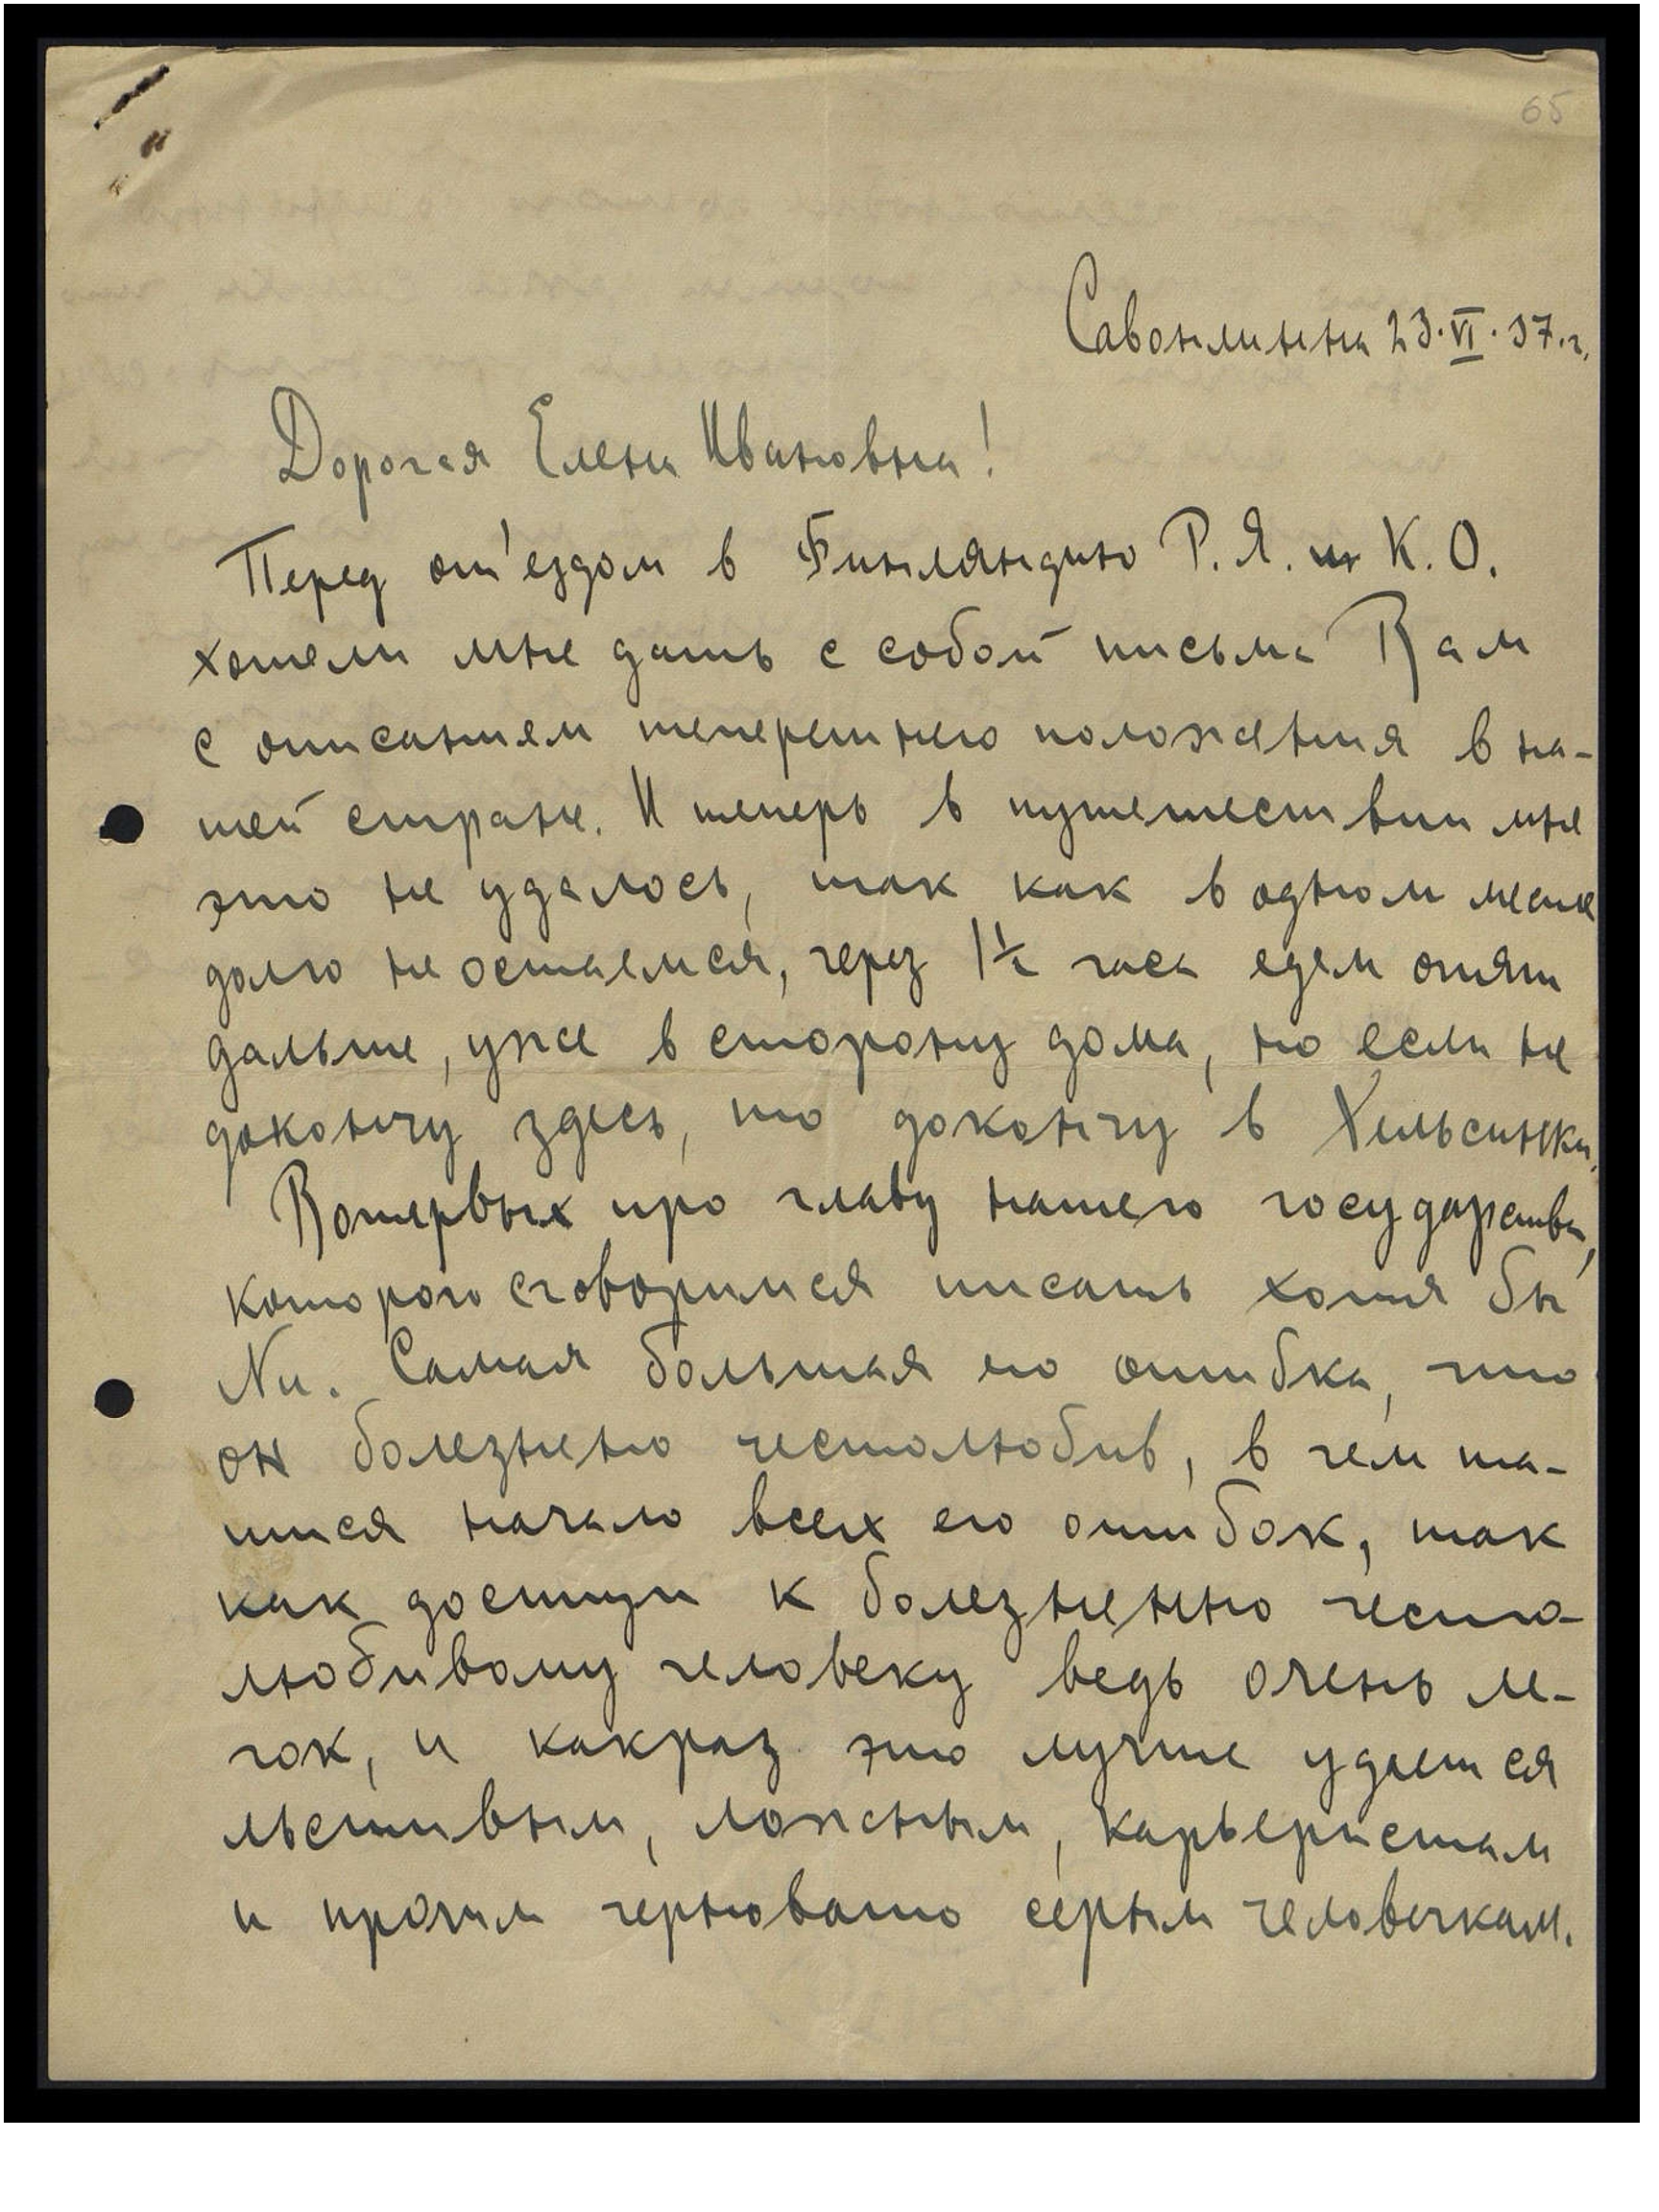 65
Савонлинна 23.VI.37.г.
Дорогая Елена Ивановна!
Перед от'ездом в Финляндию Р.Я. и К.О.
хотели мне дать с собой письма Вам
с описанием теперешнего положения в на-
шей стране. И теперь в путешествии мне
это не удалось, так как в одном месте
долго не остаемся, через 1½ часа едем опять
дальше, уже в сторону дома, но если не
докончу здесь, то докончу в Хельсинки.
Вопервых про главу нашего государства,
которого сговоримся писать хотя бы
Nu. Самая большая его ошибка, что
он болезнено честолюбив, в чем та-
ится начало всех его ошибок, так
как доступ к болезненно често-
любивому человеку ведь очень ле-
гок, и какраз это лучше удается
льстивым, ложным, карьеристам
и прочим черновато серым человечкам.